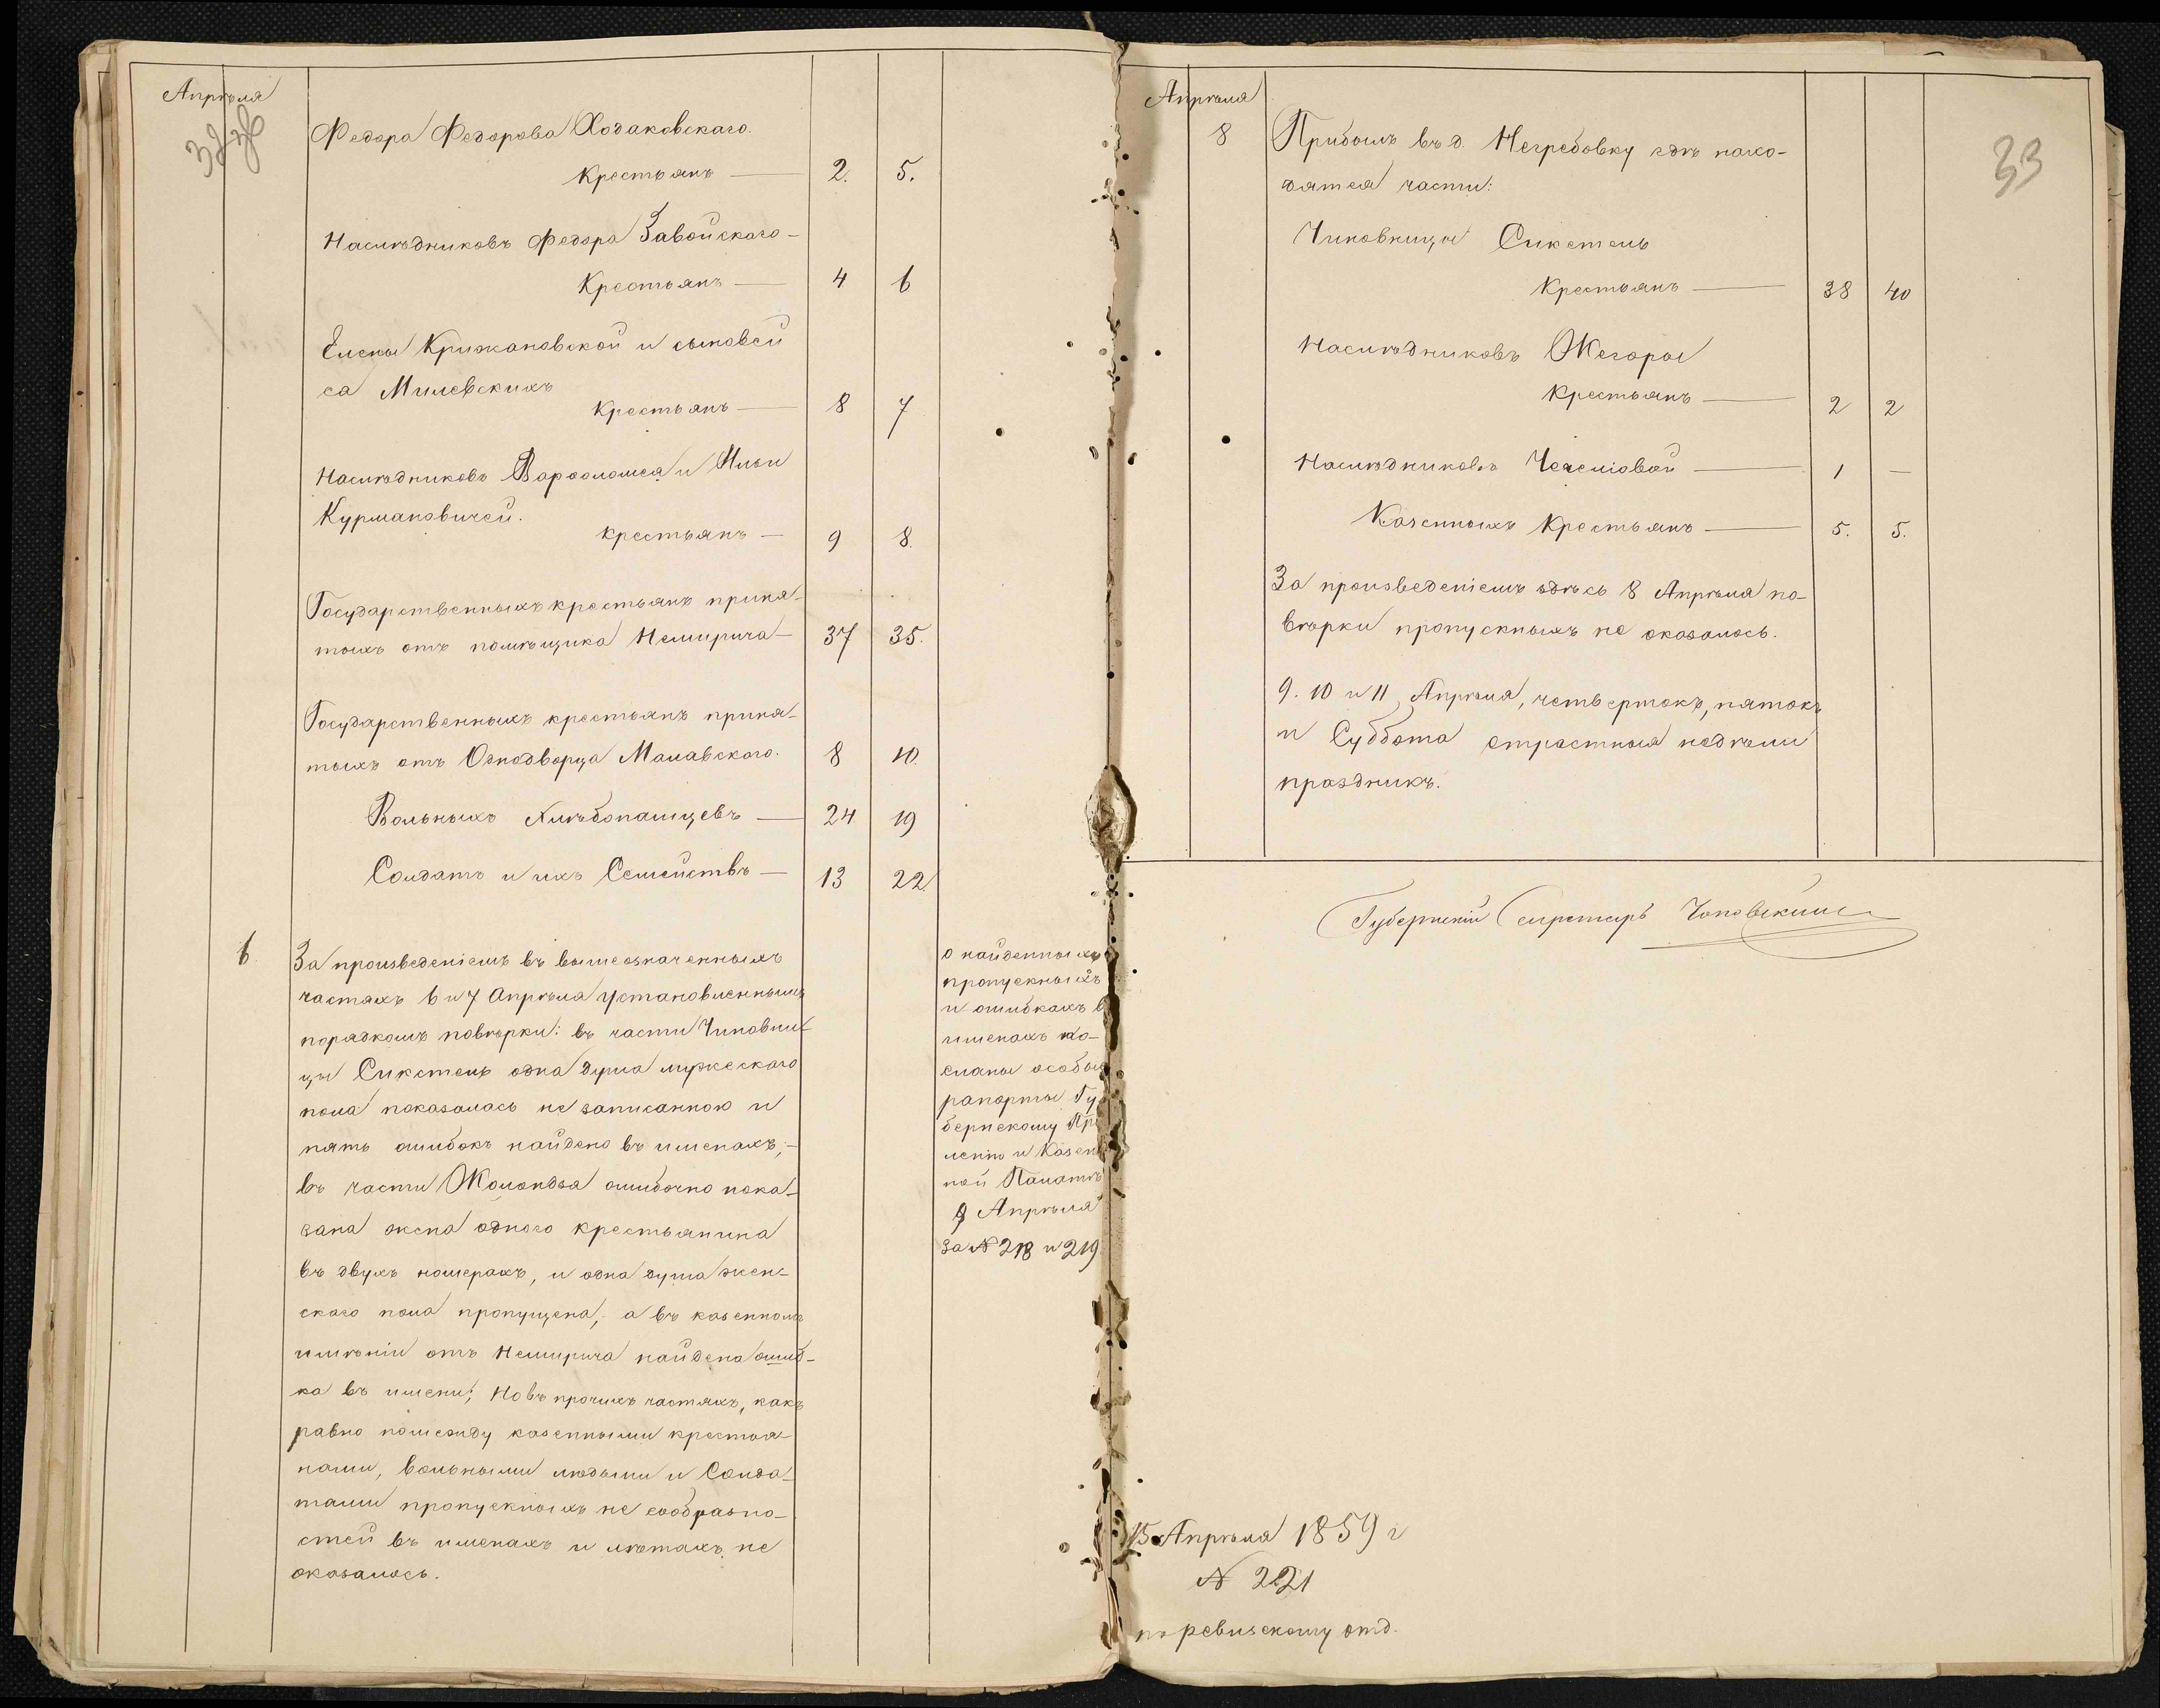 Апрѣля
Федора Федорова Ходаковскаго.
Крестьянъ — 2. 5.
Наслѣдниковъ Федора Завойскаго —
Крестьянъ — 4 6
Елены Крижановской и сыновей
са Милевскихъ
Крестьянъ — 8 7
Наслѣдниковъ Варфоломея и Ильи
Курмановичей.
крестьянъ — 9 8.
Государственныхъ крестьянъ приня-
тыхъ отъ помѣщика Немирича — 37 35.
Государственныхъ крестьянъ приня-
тыхъ отъ Однодворца Малавского. 8 10.
Вольныхъ Хлѣбопашцевъ — 24 19
Солдатъ и ихъ Семействъ — 13 22.
6 За произведеніемъ въ вышеозначенныхъ
частяхъ 6 и 7 Апрѣля установленнымъ
порядкомъ повѣрки: въ части Чиновни-
цы Сикстель одна душа мужескаго
пола показалась не записанною и
пять ошибокъ найдено въ именахъ; —
въ части Жолондзя ошибочно пока-
зана жена одного крестьянина
въ двухъ номерахъ, и одна душа жен-
скаго пола пропущена; а въ казенномъ
имѣніи отъ Немирича найдена ошиб-
ка въ имени; Но въ прочихъ частяхъ, какъ
равно помежду казенными крестья-
нами, вольными людьми и Солда-
тами пропускныхъ не сообразно-
стей въ именахъ и лѣтахъ не
оказалось.
о найденныхъ
пропускныхъ
и ошибкахъ в
именахъ по-
сланы особые
рапорты Гу
бернскому Пр
ленію и Казен
ной Палатѣ
9 Апрѣля
за № 218 и 219
Апрѣля
33
8 Прибылъ въ д. Негребовку гдѣ нахо-
дятся части:
Чиновницы Сикстель
Крестьянъ — 38 40
Наслѣдниковъ Жегоры
Крестьянъ — 2 2
Наслѣдниковъ — 1 —
Казенныхъ Крестьянъ — 5. 5.
За произведеніемъ здѣсь 8 Апрѣля по-
вѣрки пропускныхъ не оказалось.
9. 10 и 11 Апрѣля, четвертокъ, пятокъ
и Суббота страстныя недѣли
праздникъ.
Губернскій Секретарь
15 Апрѣля 1859 г
№ 221
по ревизскому отд.